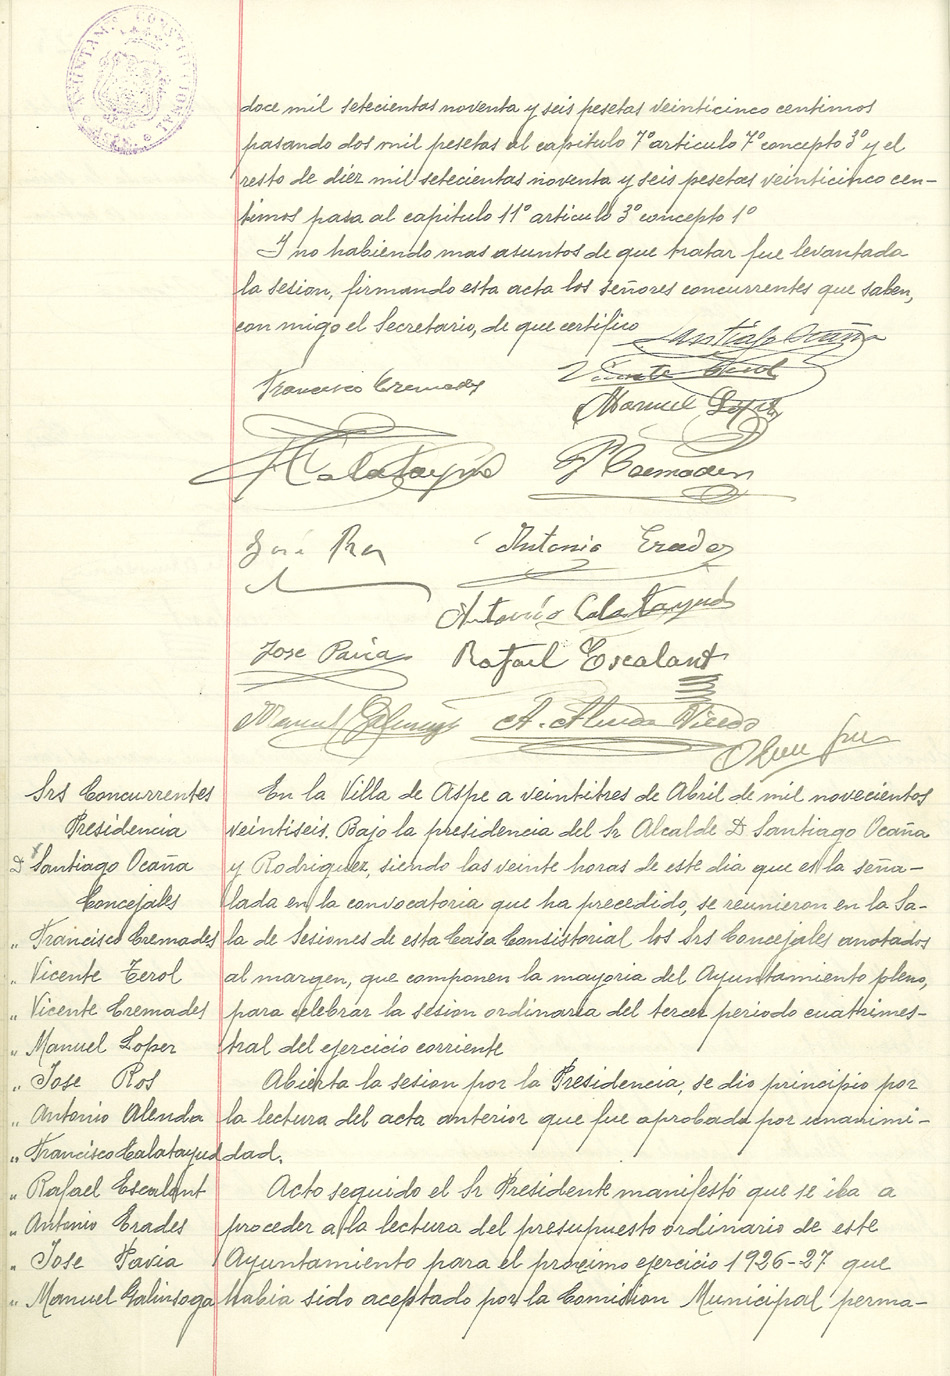 AYUNTAMº CONSTITUCIONAL
doce mil setecientas noventa y seis pesetas veinticinco centimos
pasando dos mil pesetas al capitulo 7º articulo 7º concepto 3º y el
resto de diez mil setecientas noventa y seis pesetas veinticinco cen-
timos pasa al capitulo 11º articulo 3º concepto 1º
Y no habiendo mas asuntos de que tratar fue levantada
la sesion, firmando esta acta los señores concurrentes que saben,
con migo el Secretario, de que certifico
Santiago Ocaña
Francisco Cremades
Vicente Terol
Manuel Lopez
Calatayud
Cremades
José Ros
Antonio Erades
Antonio Calatayud
Jose Pavia
Rafael Escalant
Manuel
A. Alenda
Srs Concurrentes
Presidencia
D Santiago Ocaña
Concejales
„ Francisco Cremades
„ Vicente Terol
„ Vicente Cremades
„ Manuel Lopez
„ Jose Ros
„ Antonio Alenda
„ Francisco Calatayud
„ Rafael Escalant
„ Antonio Erades
„ Jose Pavia
„ Manuel Galinsoga
En la Villa de Aspe a veintitres de Abril de mil novecientos
veintiseis. Bajo la presidencia del Sr Alcalde D Santiago Ocaña
y Rodriguez, siendo las veinte horas de este dia que es la seña-
lada en la convocatoria que ha precedido, se reunieron en la Sa-
la de Sesiones de esta Casa Consistorial los Srs Concejales anotados
al margen, que componen la mayoria del Ayuntamiento pleno,
para celebrar la sesion ordinaria del tercer periodo cuatrimes-
tral del ejercicio corriente
Abierta la sesion por la Presidencia, se dio principio por
la lectura del acta anterior que fue aprobada por unanimi-
dad.
Acto seguido el Sr Presidente manifestó que se iba a
proceder a la lectura del presupuesto ordinario de este
Ayuntamiento para el proximo ejercicio 1926-27 que
habia sido aceptado por la Comision Municipal perma-